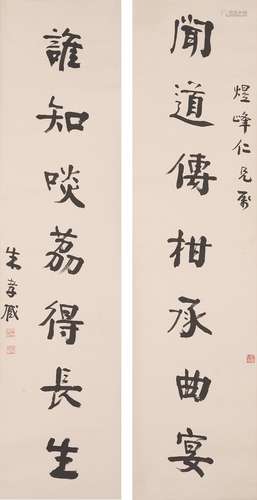 煜峰仁兄屬
聞道傳柑承曲宴
誰知啖荔得長生
朱孝臧